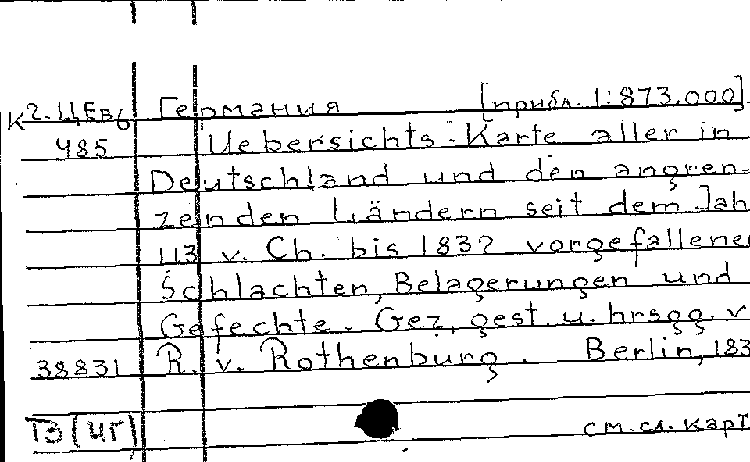 К2.ЦЕв6 Германия [прибл. 1:873.000]
485 Uebersichts-Karte aller in
Deutschland und den angren-
zenden Ländern seit dem Jah
113 v. Ch. bis 1832 vorgefallene
Schlachten, Belagerungen und
Gefechte. Gez, gest u. hrsgg. v
38831 R. v. Rothenburg. Berlin, 183
ТЭ(ЧГ) см. сл. карт